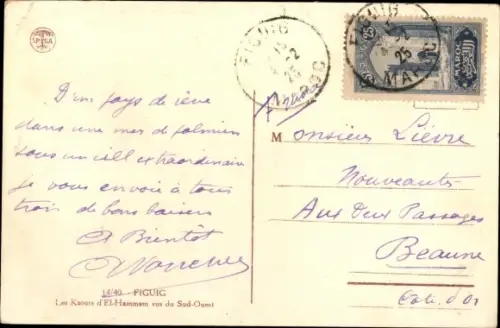 SPGA
FIGUIG
15
2
25
MAROC
FIGUIG
2
25
MAROC
25
MAROC
D'un pays de rêve
dans une mer de palmiers
sous un ciel extraordinaire
je vous envoie à tous
trois de bons baisers
A Bientôt
Monsieur Lièvre
Nouveautés
Aux deux Passages
Beaune
Cote d'Or
14/40 FIGUIG
Les Ksours d'El-Hammam vus du Sud-Ouest